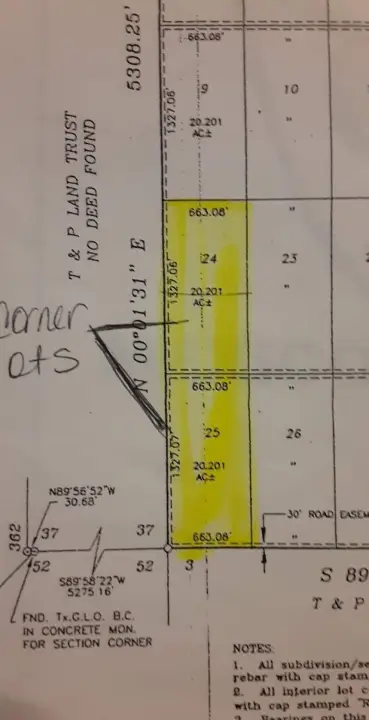 663.08'
"
5308.25'
9
10
1327.06'
20.201
AC±
"
T & P LAND TRUST
NO DEED FOUND
663.08'
"
N 00°01'31" E
24
23
1327.06'
20.201
AC±
"
Corner
ots
663.08'
"
25
26
1327.07'
20.201
AC±
"
N89°56'52"W
30.68'
30' ROAD EASEM
362
37
37
663.08'
"
52
52
3
S89°58'22"W
5275.16'
S 89
T & P
FND. Tx.G.L.O. B.C.
IN CONCRETE MON.
FOR SECTION CORNER
NOTES:
1. All subdivision/se
rebar with cap stam
2. All interior lot c
with cap stamped "R
3. Bearings on this